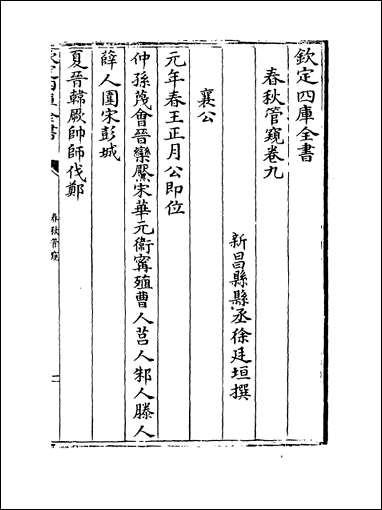 欽定四庫全書
春秋管窺卷九
新昌縣縣丞徐廷垣撰
襄公
元年春王正月公即位
仲孫蔑會晉欒黶宋華元衛甯殖曹人莒人邾人滕人
薛人圍宋彭城
夏晉韓厥帥師伐鄭
欽定四庫全書
春秋管窺
一